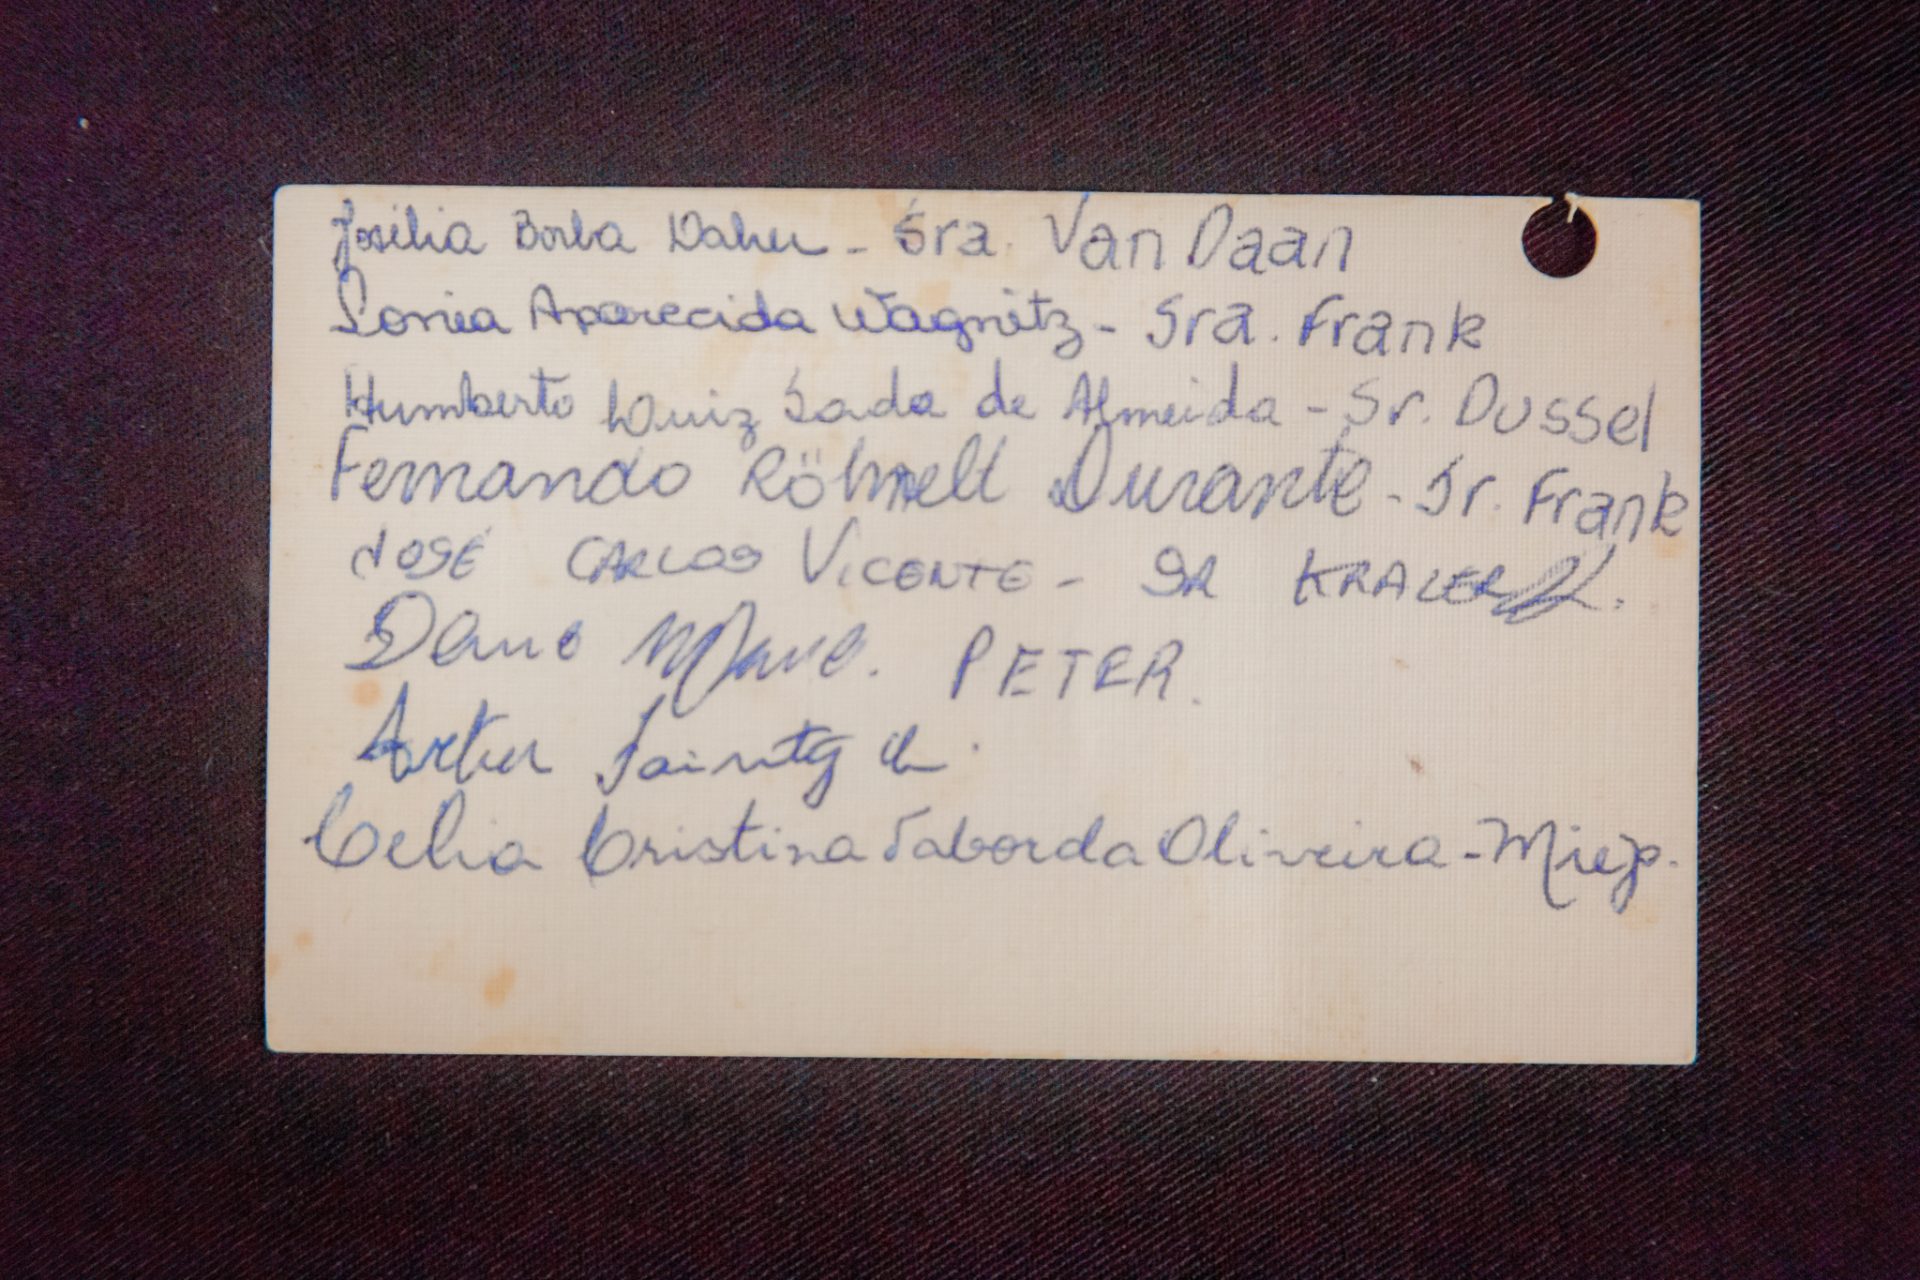 Josilia Borba Daher - Sra. Van Daan
Sonia Aparecida Wagnitz - Sra. Frank
Humberto Luiz Sada de Almeida - Sr. Dussel
Fernando Röhnelt Durante - Sr. Frank
JOSÉ CARLOS VICENTE - SR KRALER
PETER.
Artur
Celia Cristina Taborda Oliveira - Miep.